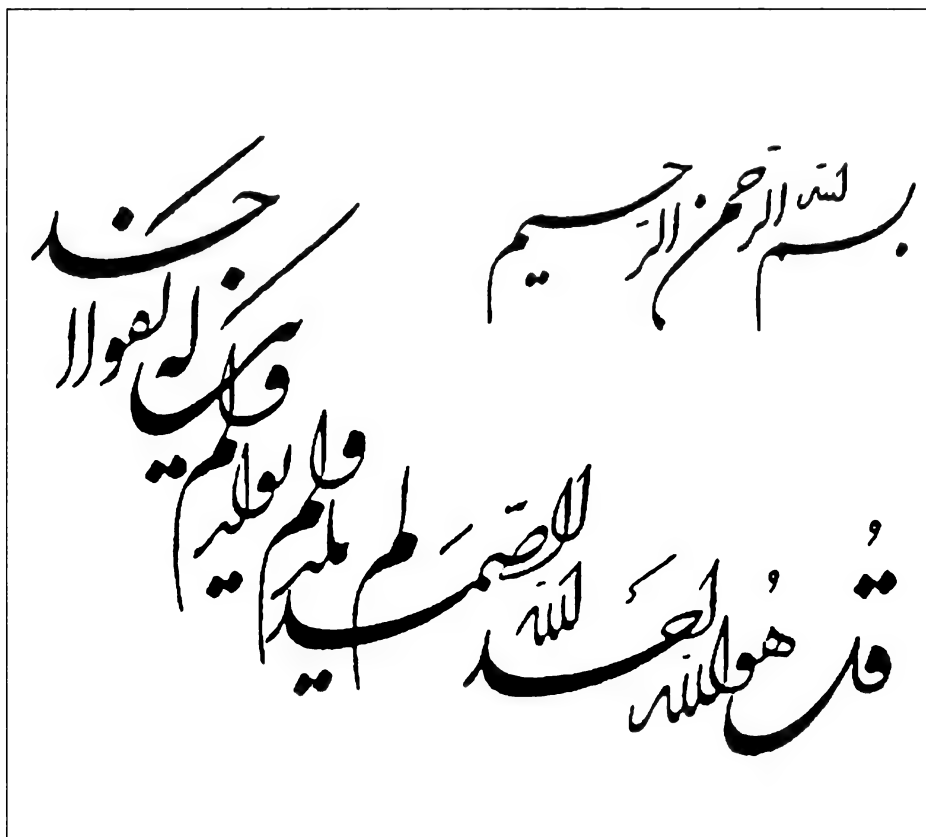 بسم الله الرحمن الرحيم
قُل هُو الله احَد الله الصَمَد لم يلد ولم يولد ولم يكن له كفوا احد